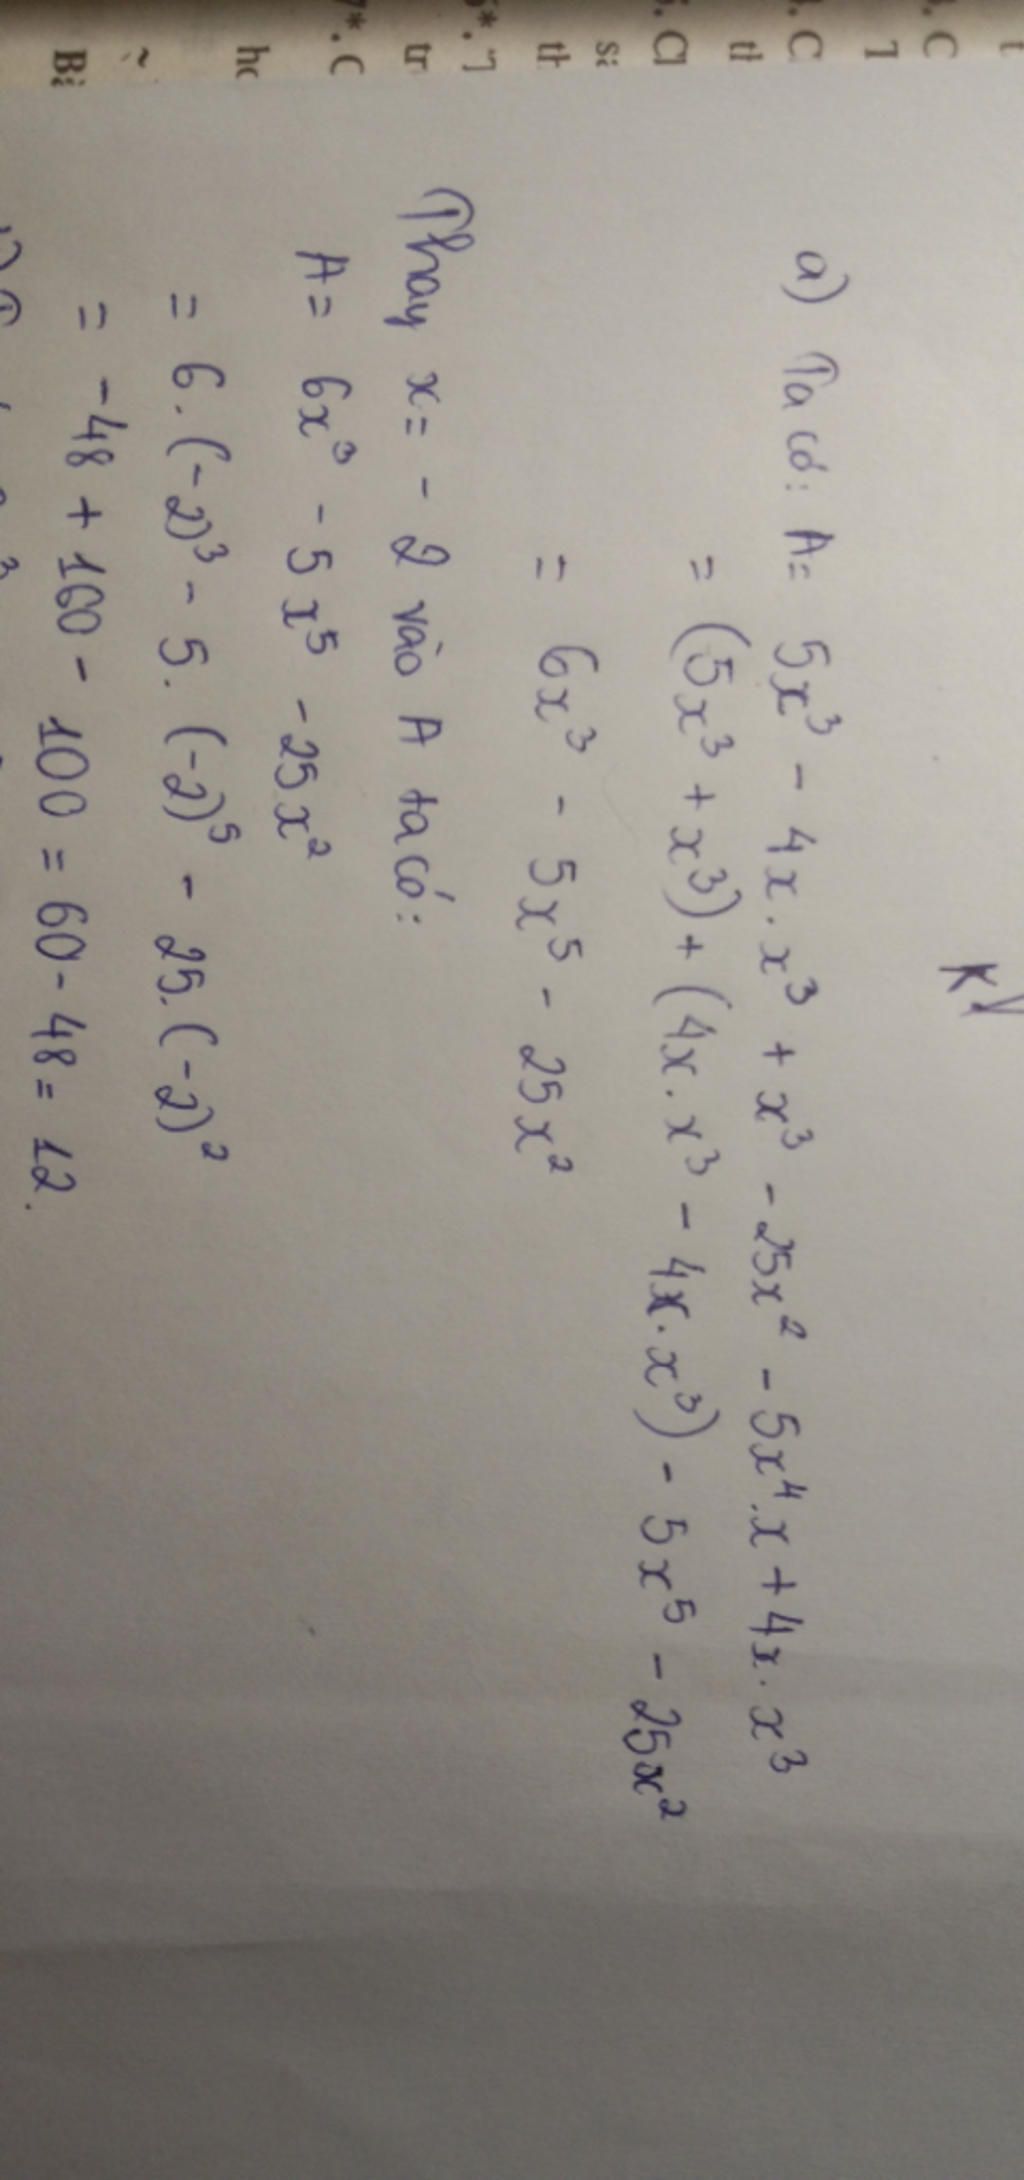 a) Ta có: A= 5x³ - 4x.x³ + x³ - 25x² - 5x⁴.x + 4x.x³
= (5x³ + x³) + (4x.x³ - 4x.x³) - 5x⁵ - 25x²
= 6x³ - 5x⁵ - 25x²
Thay x= -2 vào A ta có:
A= 6x³ - 5x⁵ - 25x²
= 6.(-2)³ - 5.(-2)⁵ - 25.(-2)²
= -48 + 160 - 100 = 60 - 48 = 12.